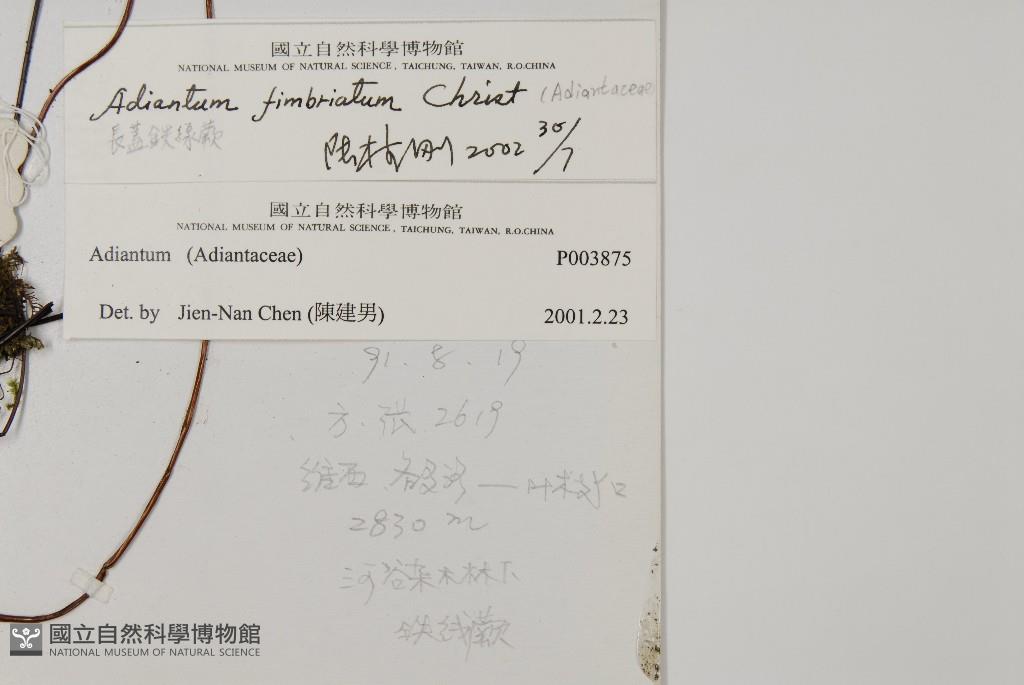 國立自然科學博物館
NATIONAL MUSEUM OF NATURAL SCIENCE, TAICHUNG, TAIWAN, R.O.CHINA
Adiantum fimbriatum Christ (Adiantaceae
長蓋鉄線蕨
2002 30/7
國立自然科學博物館
NATIONAL MUSEUM OF NATURAL SCIENCE, TAICHUNG, TAIWAN, R.O.CHINA
Adiantum (Adiantaceae) P003875
Det. by Jien-Nan Chen (陳建男) 2001.2.23
91.8.19
方.张 2619
维西
2830 m
河谷杂木林下
鉄线蕨
國立自然科學博物館
NATIONAL MUSEUM OF NATURAL SCIENCE